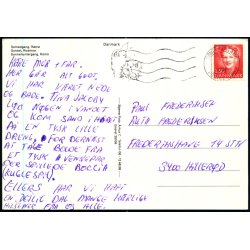 Solnedgang, Rømø
Sunset, Rømø
Sonnenuntergang, Rømø
Danmark
DANMARK
KÆRE MOR + FAR.
HER GÅR ALT GODT,
VI HAR VÆRET NEDE
OG BADE. TINA JACOBY
LÅ NØGEN I VANDET
OG KOM SAND I HÅRET
PÅ EN TYSK LILLE
DRENG, FOR DEREFTER
AT TAGE BOLDE FRA
ET TYSK VENNEPAR
DER SPILLEDE BOCCIA
(KUGLESPIL).
ELLERS HAR VI HAFT
EN DEJLIG DAG MANGE KÆRLIGE
HILSENER FRA OS ALLE.
POUL FREDERIKSEN
RITA FREDERIKSEN
FREDERIKSHAVN 14 ST.H
3400 HILLERØD